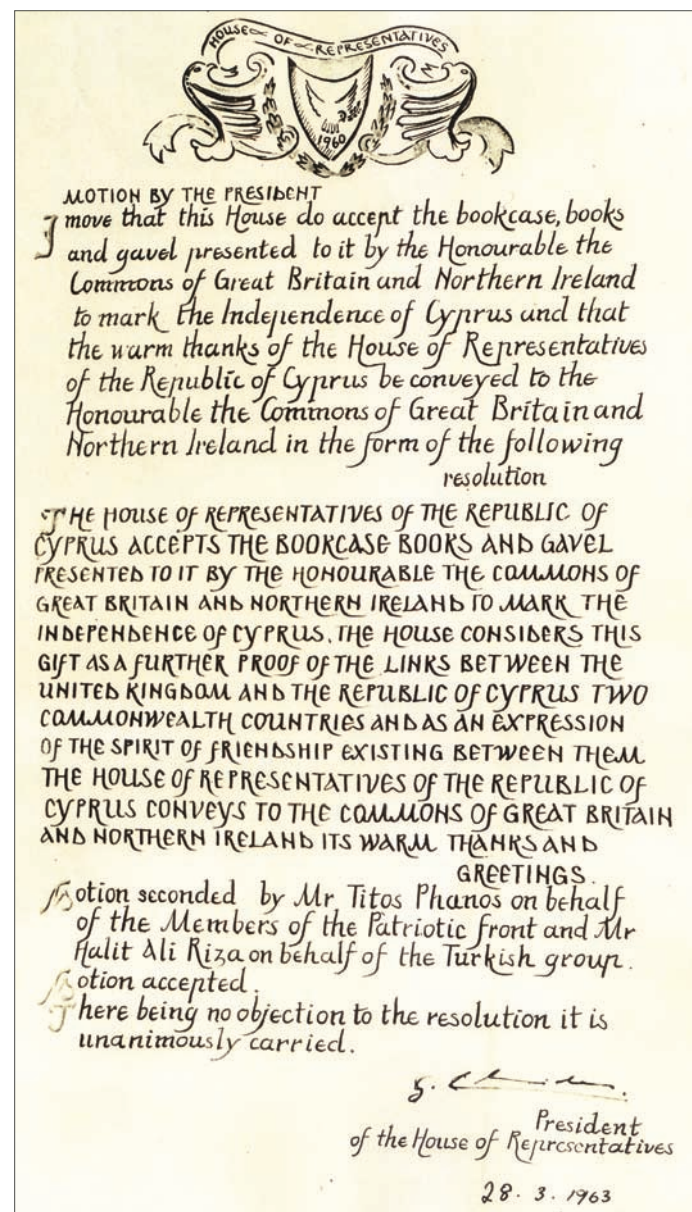 HOUSE OF REPRESENTATIVES
1960
MOTION BY THE PRESIDENT
I move that this House do accept the bookcase, books
and gavel presented to it by the Honourable the
Commons of Great Britain and Northern Ireland
to mark the Independence of Cyprus and that
the warm thanks of the House of Representatives
of the Republic of Cyprus be conveyed to the
Honourable the Commons of Great Britain and
Northern Ireland in the form of the following
resolution
THE HOUSE OF REPRESENTATIVES OF THE REPUBLIC OF
CYPRUS ACCEPTS THE BOOKCASE BOOKS AND GAVEL
PRESENTED TO IT BY THE HONOURABLE THE COMMONS OF
GREAT BRITAIN AND NORTHERN IRELAND TO MARK THE
INDEPENDENCE OF CYPRUS. THE HOUSE CONSIDERS THIS
GIFT AS A FURTHER PROOF OF THE LINKS BETWEEN THE
UNITED KINGDOM AND THE REPUBLIC OF CYPRUS TWO
COMMONWEALTH COUNTRIES AND AS AN EXPRESSION
OF THE SPIRIT OF FRIENDSHIP EXISTING BETWEEN THEM
THE HOUSE OF REPRESENTATIVES OF THE REPUBLIC OF
CYPRUS CONVEYS TO THE COMMONS OF GREAT BRITAIN
AND NORTHERN IRELAND ITS WARM THANKS AND
GREETINGS.
Motion seconded by Mr Titos Phanos on behalf
of the Members of the Patriotic front and Mr
Halit Ali Riza on behalf of the Turkish group.
Motion accepted.
There being no objection to the resolution it is
unanimously carried.
President
of the House of Representatives
28.3.1963